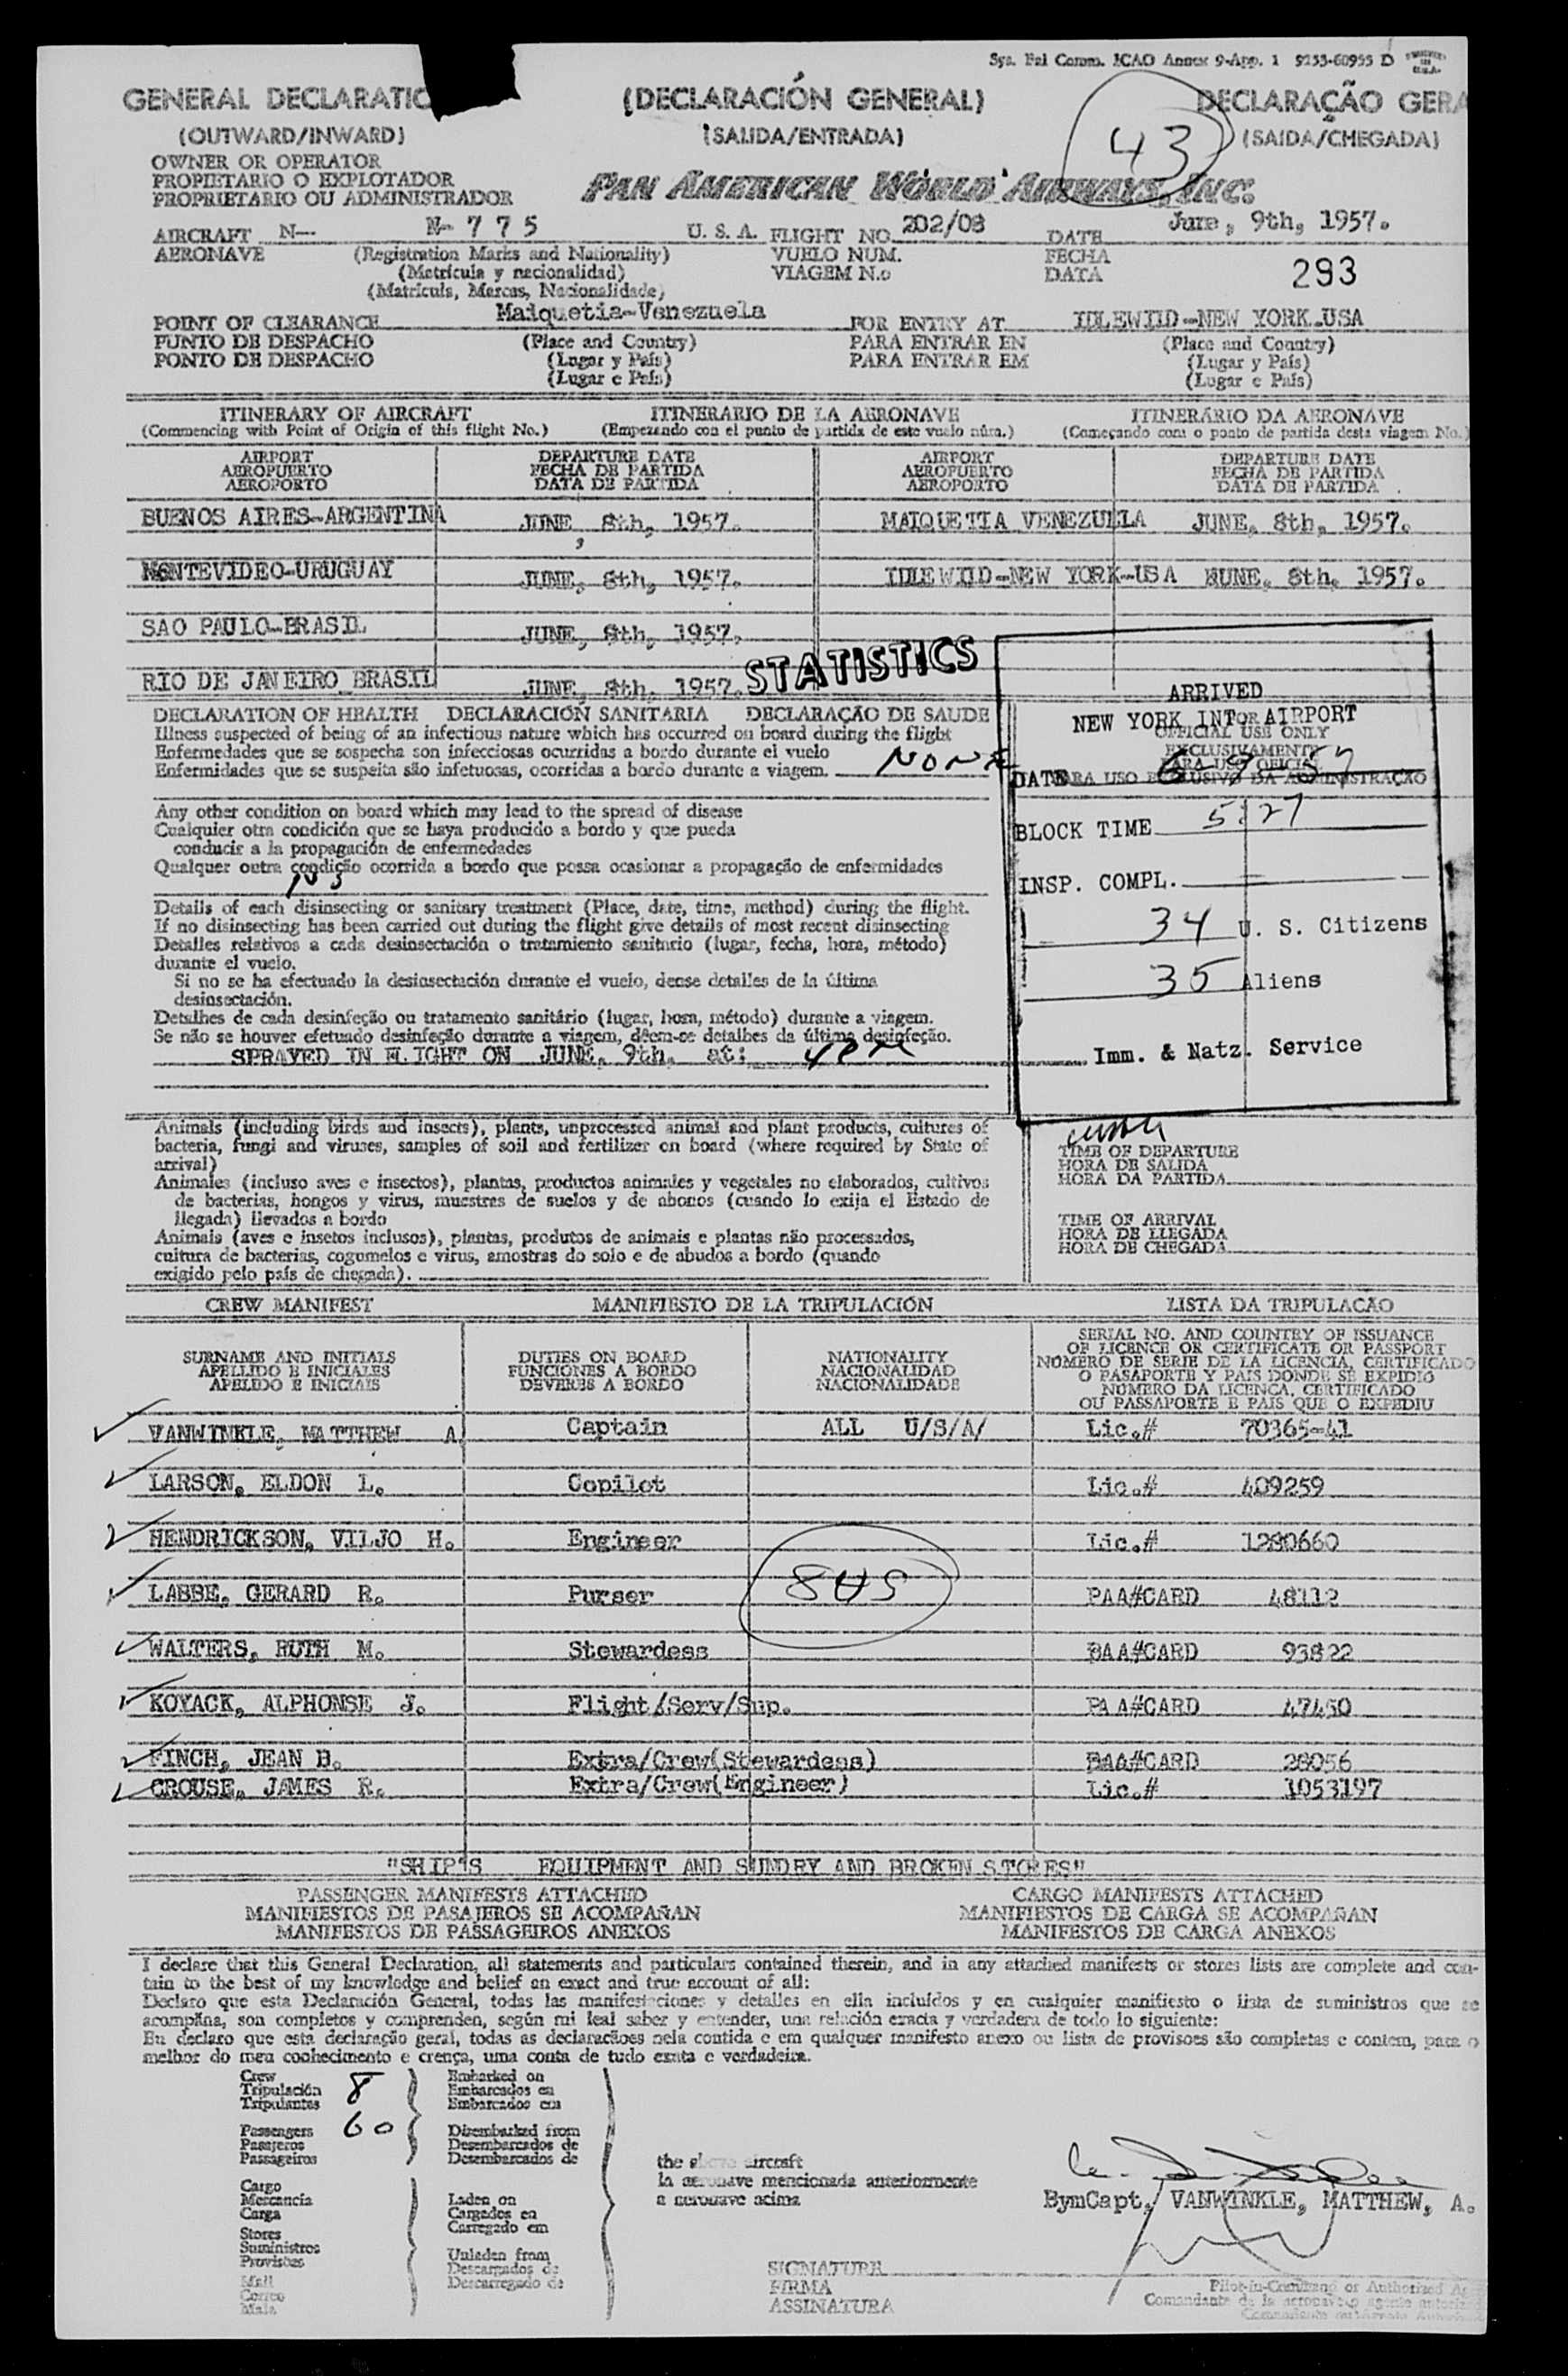 Sys. Fal Comm. ICAO Annex 9-App. 1 9253-60955 D
GENERAL DECLARATIO (DECLARACIÓN GENERAL) DECLARAÇÃO GERA
(OUTWARD/INWARD) (SALIDA/ENTRADA) 43 (SAIDA/CHEGADA)
OWNER OR OPERATOR
PROPIETARIO O EXPLOTADOR
PROPRIETARIO OU ADMINISTRADOR
PAN AMERICAN WORLD AIRWAYS, INC.
AIRCRAFT N— N- 7 7 5 U. S. A. FLIGHT NO. 202/08 DATE June, 9th, 1957.
AERONAVE (Registration Marks and Nationality) VUELO NUM. FECHA
(Matrícula y nacionalidad) VIAGEM N.o DATA 293
(Matrícula, Marcas, Nacionalidade)
POINT OF CLEARANCE Maiquetia-Venezuela FOR ENTRY AT IDLEWILD-NEW YORK-USA
PUNTO DE DESPACHO (Place and Country) PARA ENTRAR EN (Place and Country)
PONTO DE DESPACHO (Lugar y País) PARA ENTRAR EM (Lugar y País)
(Lugar e País) (Lugar e País)
ITINERARY OF AIRCRAFT ITINERARIO DE LA AERONAVE ITINERÁRIO DA AERONAVE
(Commencing with Point of Origin of this flight No.) (Empezando con el punto de partida de este vuelo núm.) (Começando com o ponto de partida desta viagem No.)
AIRPORT DEPARTURE DATE AIRPORT DEPARTURE DATE
AEROPUERTO FECHA DE PARTIDA AEROPUERTO FECHA DE PARTIDA
AEROPORTO DATA DE PARTIDA AEROPORTO DATA DE PARTIDA
BUENOS AIRES-ARGENTINA JUNE 8th, 1957. MAIQUETIA VENEZUELA JUNE, 8th, 1957.
MONTEVIDEO-URUGUAY JUNE, 8th, 1957. IDLEWILD-NEW YORK-USA JUNE, 8th, 1957.
SAO PAULO-BRASIL JUNE, 8th, 1957.
RIO DE JANEIRO BRASIL JUNE, 8th, 1957. STATISTICS
DECLARATION OF HEALTH DECLARACIÓN SANITARIA DECLARAÇÃO DE SAUDE
Illness suspected of being of an infectious nature which has occurred on board during the flight
Enfermedades que se sospecha son infecciosas ocurridas a bordo durante el vuelo
Enfermidades que se suspeita são infetuosas, ocorridas a bordo durante a viagem. NONE
ARRIVED
NEW YORK INT. AIRPORT
OFFICIAL USE ONLY
EXCLUSIVAMENTE
PARA USO OFICIAL
PARA USO EXCLUSIVO DA ADMINISTRAÇÃO
DATE 6 9 57
BLOCK TIME 5:27
INSP. COMPL.
34 U. S. Citizens
35 Aliens
Imm. & Natz. Service
Any other condition on board which may lead to the spread of disease
Cualquier otra condición que se haya producido a bordo y que pueda
conducir a la propagación de enfermedades
Qualquer outra condição ocorrida a bordo que possa ocasionar a propagação de enfermidades
Details of each disinsecting or sanitary treatment (Place, date, time, method) during the flight.
If no disinsecting has been carried out during the flight give details of most recent disinsecting
Detalles relativos a cada desinsectación o tratamiento sanitario (lugar, fecha, hora, método)
durante el vuelo.
Si no se ha efectuado la desinsectación durante el vuelo, dense detalles de la última
desinsectación.
Detalhes de cada desinfeção ou tratamento sanitário (lugar, hora, método) durante a viagem.
Se não se houver efetuado desinfeção durante a viagem, dêem-se detalhes da última desinfeção.
SPRAYED IN FLIGHT ON JUNE, 9th, at: 4PM
Animals (including birds and insects), plants, unprocessed animal and plant products, cultures of
bacteria, fungi and viruses, samples of soil and fertilizer on board (where required by State of
arrival)
Animales (incluso aves e insectos), plantas, productos animales y vegetales no elaborados, cultivos
de bacterias, hongos y virus, muestras de suelos y de abonos (cuando lo exija el Estado de
llegada) llevados a bordo
Animais (aves e insetos inclusos), plantas, produtos de animais e plantas não processados,
cultura de bacterias, cogumelos e virus, amostras do solo e de abudos a bordo (quando
exigido pelo país de chegada).
TIME OF DEPARTURE
HORA DE SALIDA
HORA DA PARTIDA
TIME OF ARRIVAL
HORA DE LLEGADA
HORA DE CHEGADA
CREW MANIFEST MANIFIESTO DE LA TRIPULACIÓN LISTA DA TRIPULACÃO
SURNAME AND INITIALS DUTIES ON BOARD NATIONALITY
APELLIDO E INICIALES FUNCIONES A BORDO NACIONALIDAD
APELIDO E INICIAIS DEVERES A BORDO NACIONALIDADE
SERIAL NO. AND COUNTRY OF ISSUANCE
OF LICENCE OR CERTIFICATE OR PASSPORT
NÚMERO DE SERIE DE LA LICENCIA, CERTIFICADO
O PASAPORTE Y PAIS DONDE SE EXPIDIÓ
NÚMERO DA LICENCA, CERTIFICADO
OU PASSAPORTE E PAIS QUE O EXPEDIU
VANWINKLE, MATTHEW A Captain ALL U/S/A/ Lic.# 70365-41
LARSON, ELDON L. Copilot Lic.# 409259
HENDRICKSON, VILJO H. Engineer Lic.# 1280660
LABBE, GERARD R. Purser 845 PAA#CARD 48112
WALTERS, RUTH M. Stewardess PAA#CARD 93822
KOYACK, ALPHONSE J. Flight/Serv/Sup. PAA#CARD 47450
FINCH, JEAN B. Extra/Crew(Stewardess) PAA#CARD 28056
CROUSE, JAMES R. Extra/Crew(Engineer) Lic.# 1053197
"SHIP'S EQUIPMENT AND SUNDRY AND BROKEN STORES"
PASSENGER MANIFESTS ATTACHED CARGO MANIFESTS ATTACHED
MANIFIESTOS DE PASAJEROS SE ACOMPAÑAN MANIFIESTOS DE CARGA SE ACOMPAÑAN
MANIFESTOS DE PASSAGEIROS ANEXOS MANIFESTOS DE CARGA ANEXOS
I declare that this General Declaration, all statements and particulars contained therein, and in any attached manifests or stores lists are complete and con-
tain to the best of my knowledge and belief an exact and true account of all:
Declaro que esta Declaración General, todas las manifestaciones y detalles en ella incluídos y en cualquier manifiesto o lista de suministros que se
acompaña, son completos y comprenden, según mi leal saber y entender, una relación exacta y verdadera de todo lo siguiente:
Eu declaro que esta declaração geral, todas as declarações nela contida e em qualquer manifesto anexo ou lista de provisoes são completas e contem, para o
melhor do meu conhecimento e crença, uma conta de tudo exata e verdadeira.
Crew Embarked on
Tripulación 8 Embarcados en
Tripulantes Embarcados em
Passengers 60 Disembarked from
Pasajeros Desembarcados de
Passageiros Desembarcados de
the above aircraft
la aeronave mencionada anteriormente
a aeronave acima
Cargo
Mercancía Laden on
Carga Cargados en
Stores Carregado em
Suministros
Provisões Unladen from
Mail Descargados de
Correo Descarregado de
Mala
BymCapt, VANWINKLE, MATTHEW, A.
SIGNATURE
FIRMA
ASSINATURA
Pilot-in-Command or Authorized
Comandante de la aeronave o agente